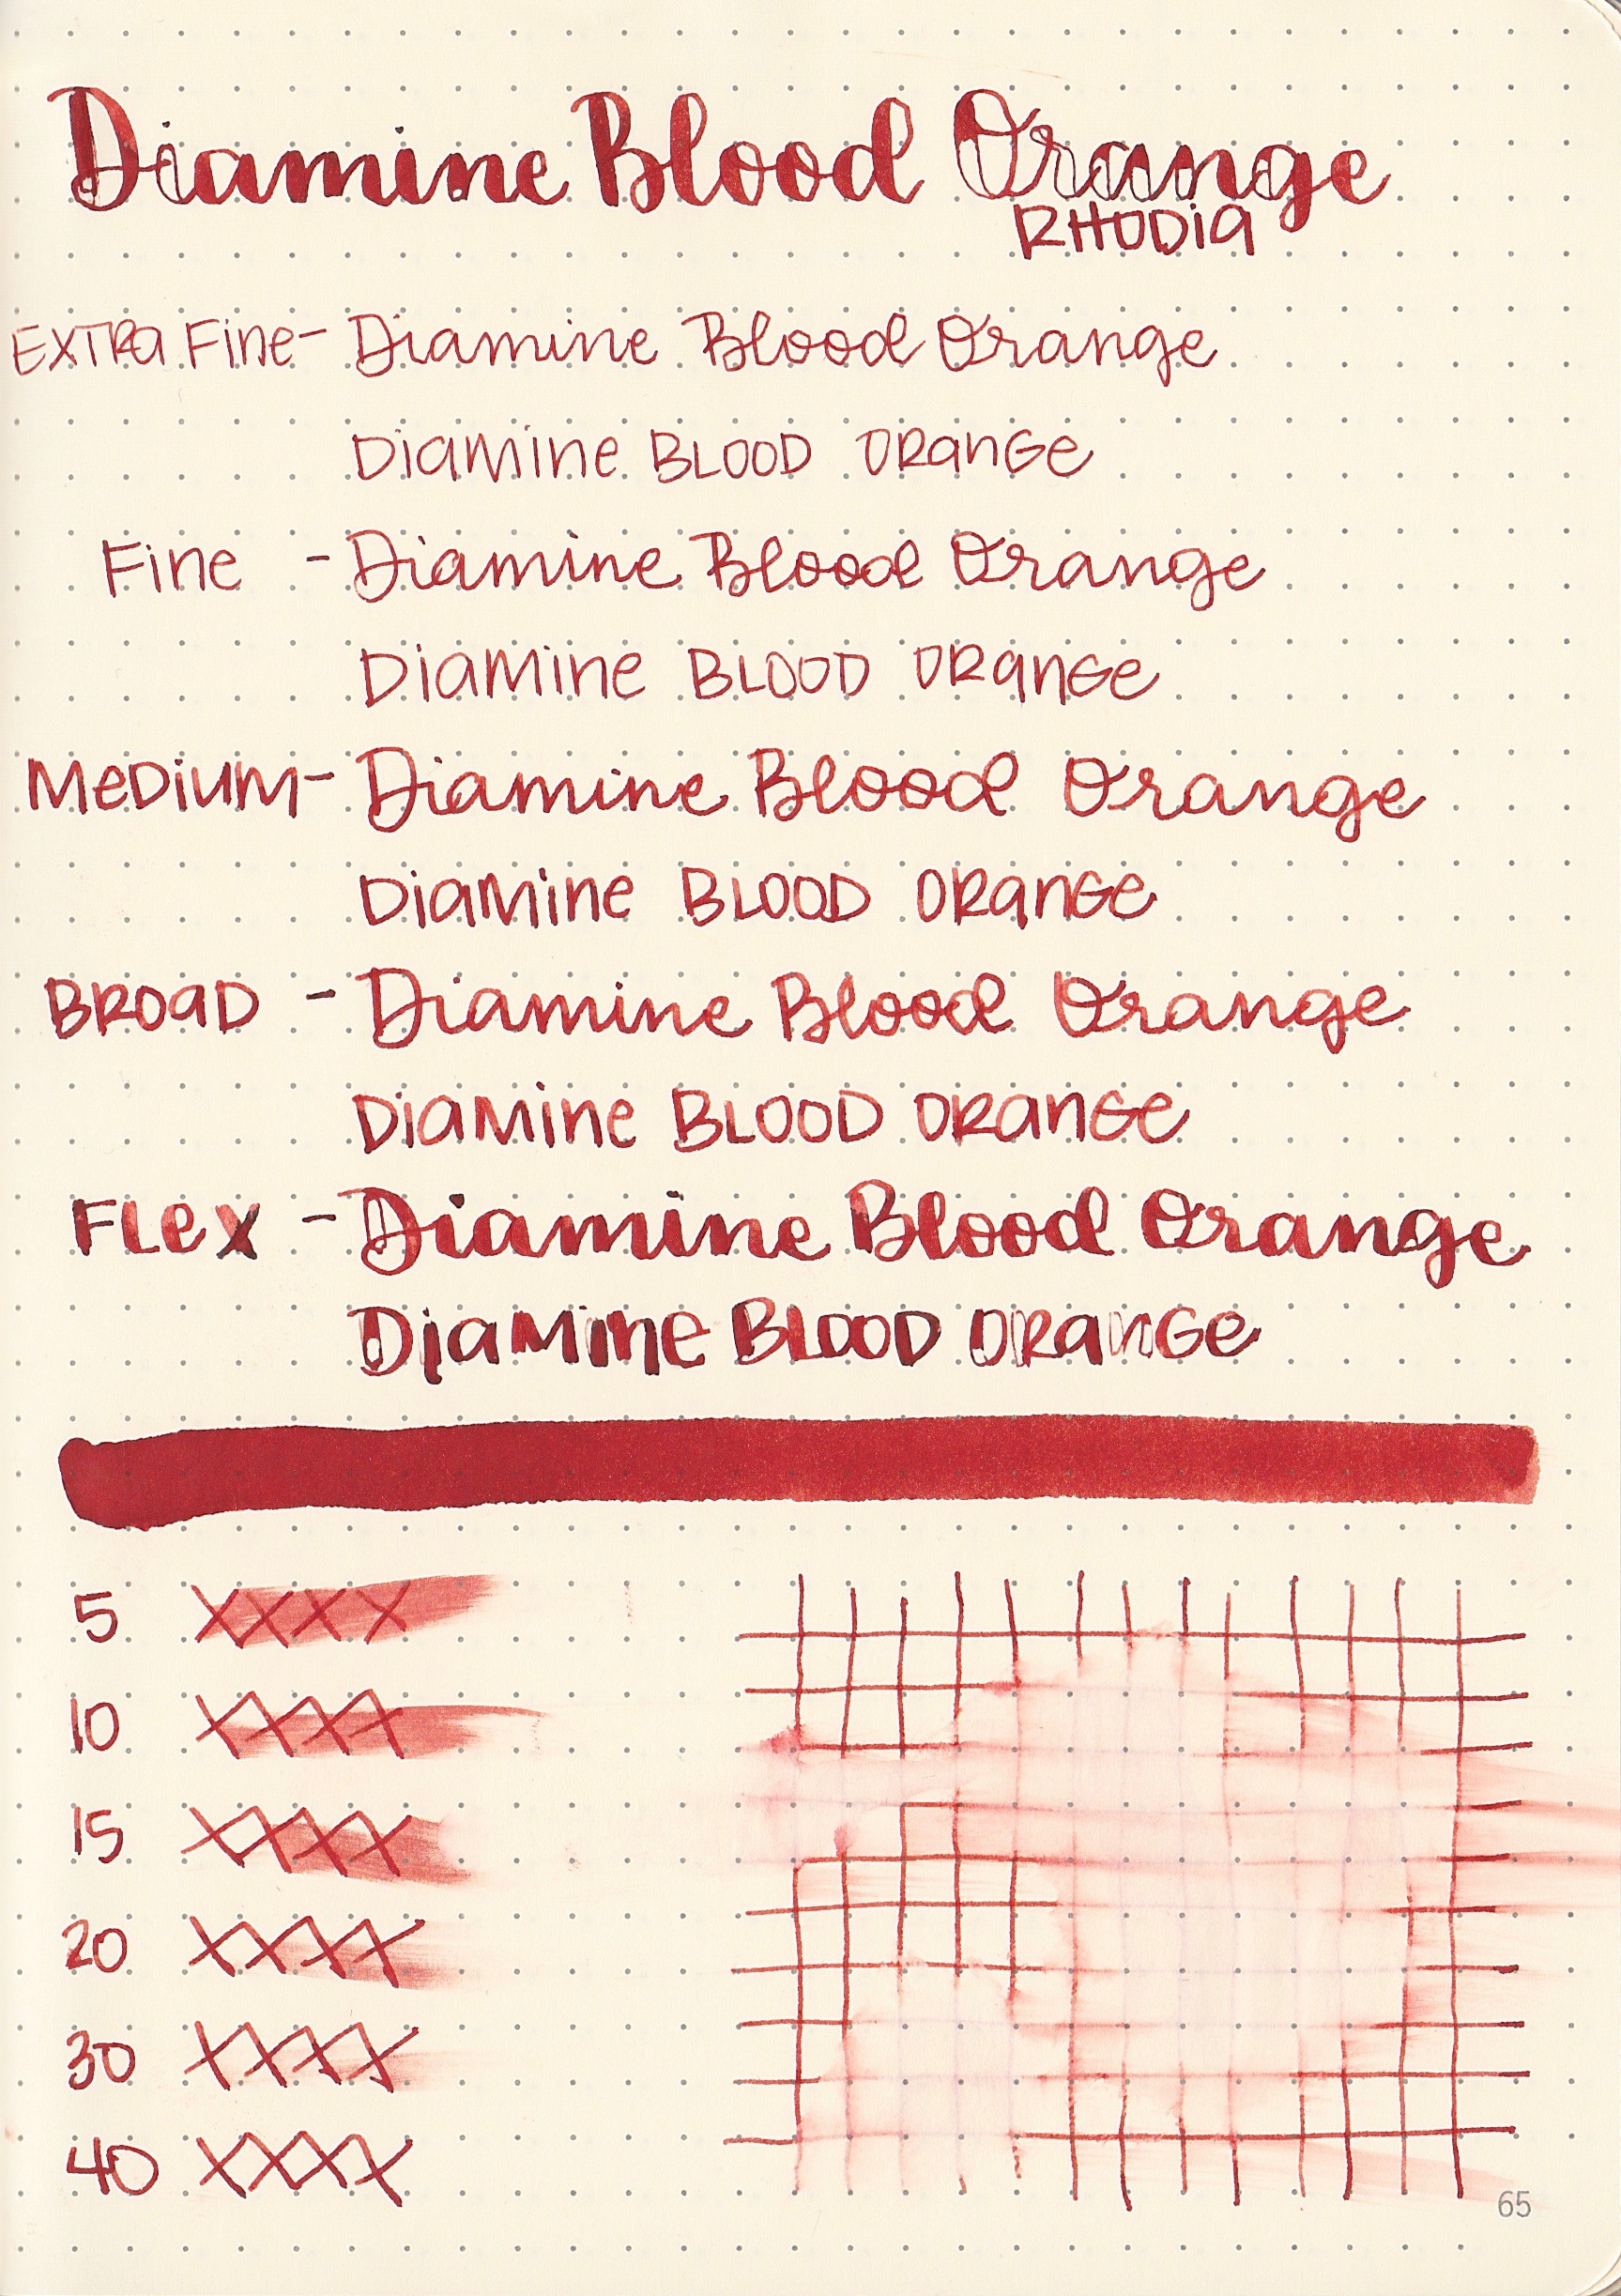 Diamine Blood Orange
RHODIA
EXTRA Fine - Diamine Blood Orange
DiaMine BLOOD ORange
Fine - Diamine Blood Orange
DiaMine BLOOD ORange
MeDiUM - Diamine Blood Orange
DiaMine BLOOD ORange
BROaD - Diamine Blood Orange
DiaMine BLOOD ORange
FLex - Diamine Blood Orange
DiaMine BLOOD ORanGe
5 XXXX
10 XXXX
15 XXXX
20 XXXX
30 XXXX
40 XXXX
65